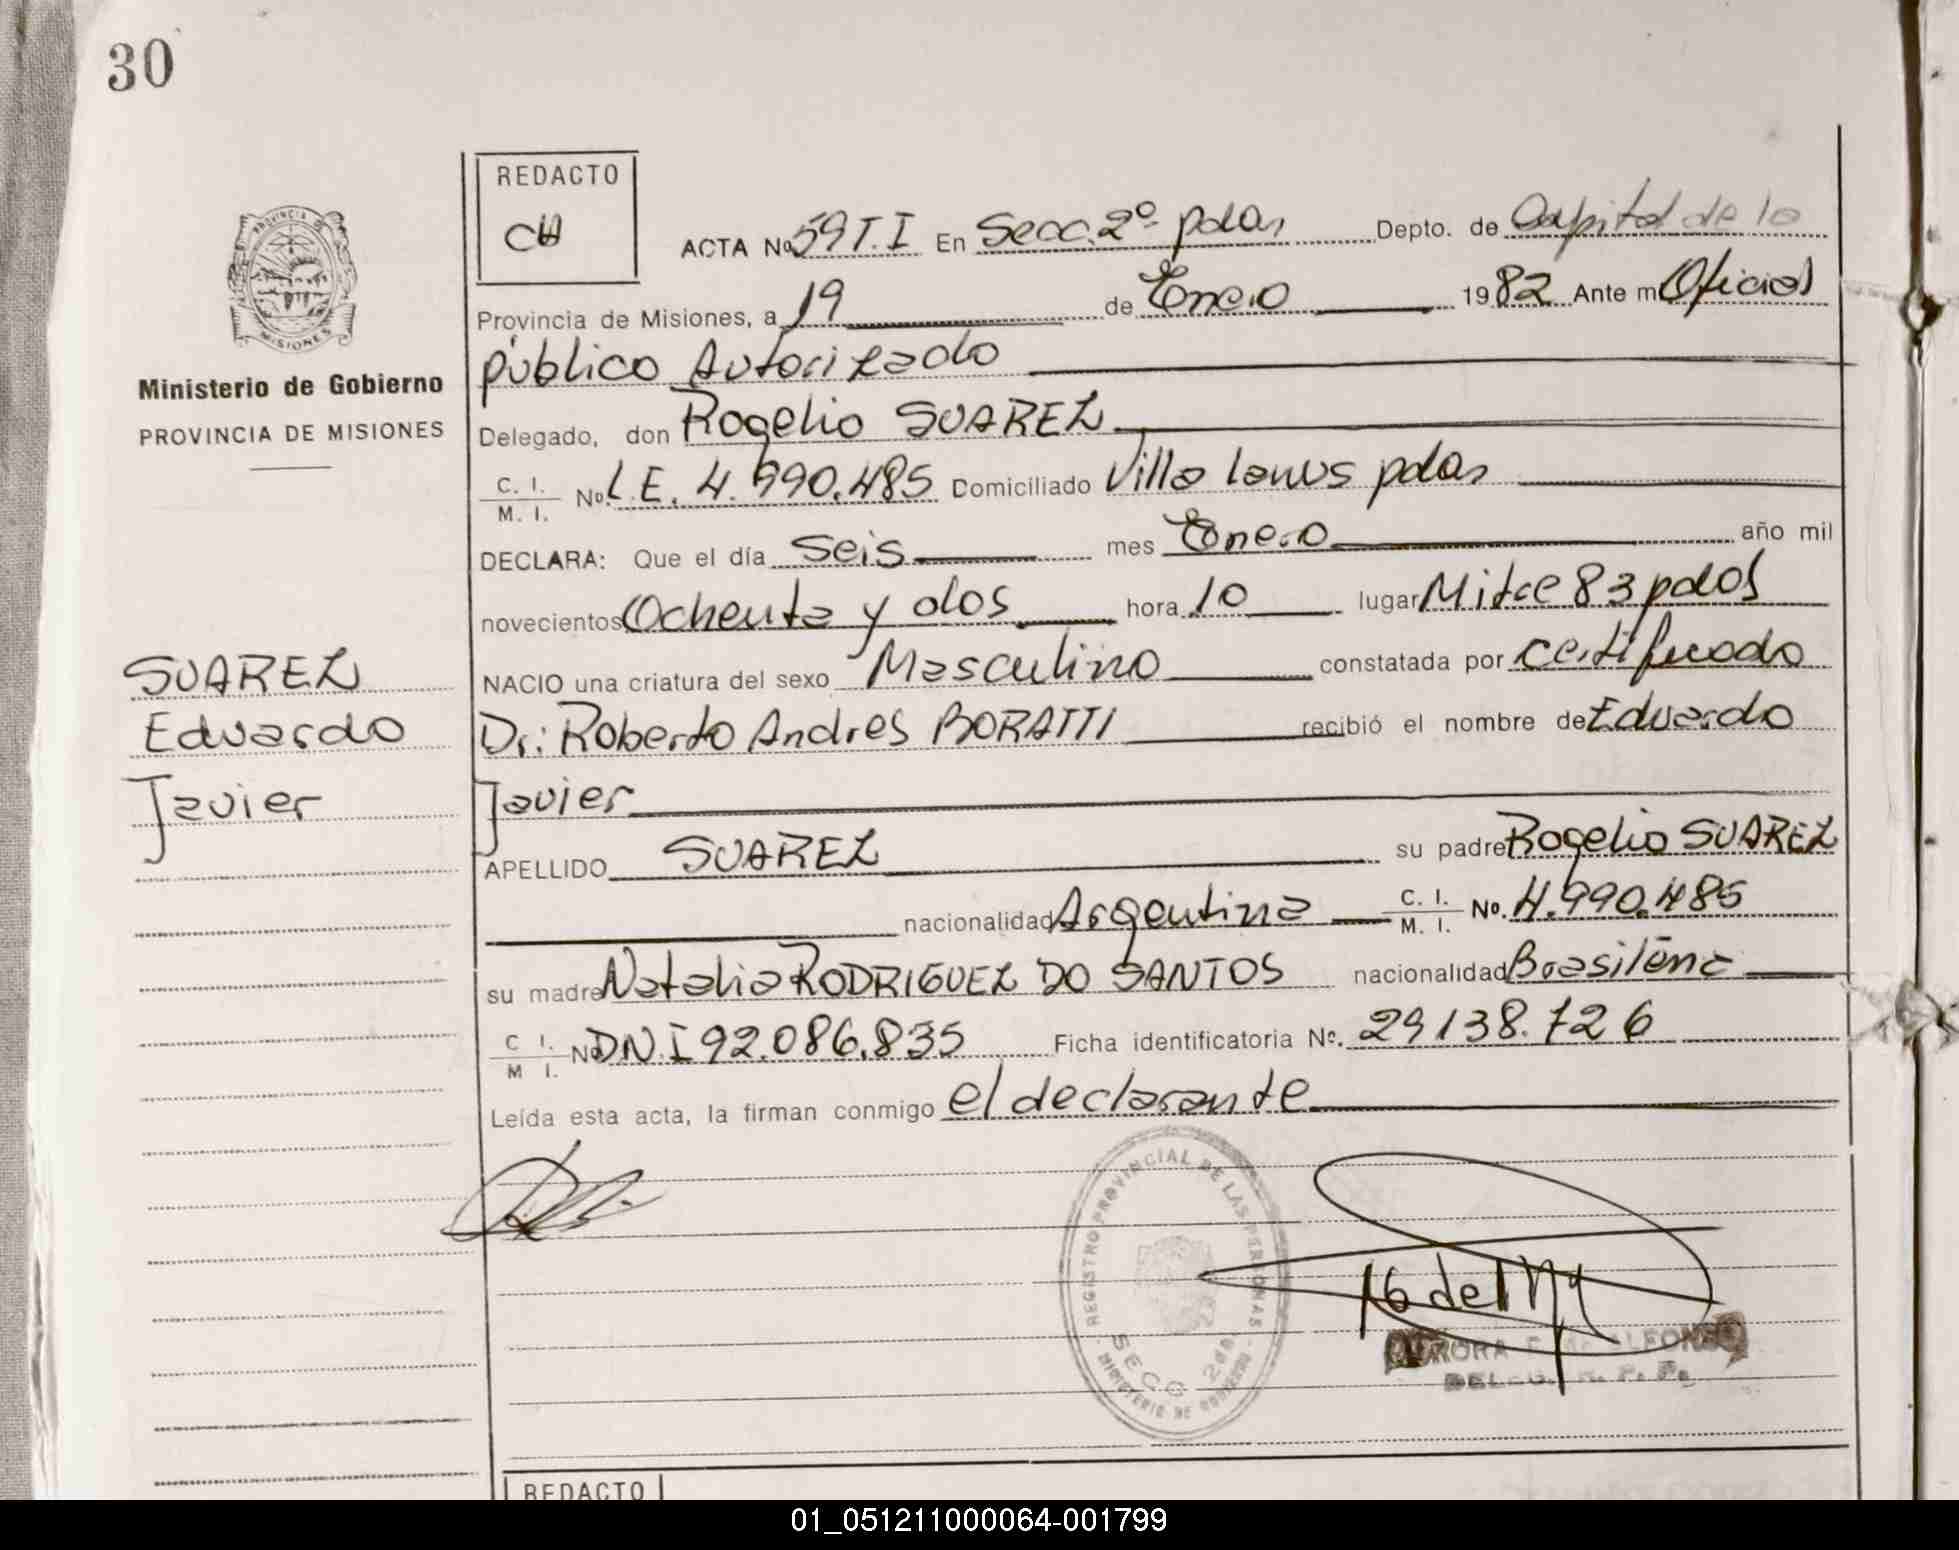 30
REDACTO
CH
PROVINCIA DE MISIONES
Ministerio de Gobierno
PROVINCIA DE MISIONES
ACTA No 59 T. I En Secc. 2º pdas Depto. de Capital de la
Provincia de Misiones, a 19 de Enero 1982 Ante mí Oficial
público Autorizado
Delegado, don Rogelio SUAREZ
C. I. M. I. No L.E. 4.990.485 Domiciliado Villa Lanus pdas
DECLARA: Que el día Seis mes Enero año mil
novecientos Ochenta y dos hora 10 lugar Mitre 83 pdas
SUAREZ
NACIO una criatura del sexo Masculino constatada por certificado
Eduardo
Dr: Roberto Andres BORATTI recibió el nombre de Eduardo
Javier
Javier
APELLIDO SUAREZ su padre Rogelio SUAREZ
nacionalidad Argentina C. I. M. I. No. 4.990.485
su madre Natalia RODRIGUEZ DO SANTOS nacionalidad Brasilena
C I. M I. No DN.I 92.086.835 Ficha identificatoria No. 29138.726
Leída esta acta, la firman conmigo el declarante
REGISTRO PROVINCIAL DE LAS PERSONAS
SECC 2da
MINISTERIO DE GOBIERNO
AURORA ALFONSO
DELEG. R. P. P.
REDACTO
01_051211000064-001799